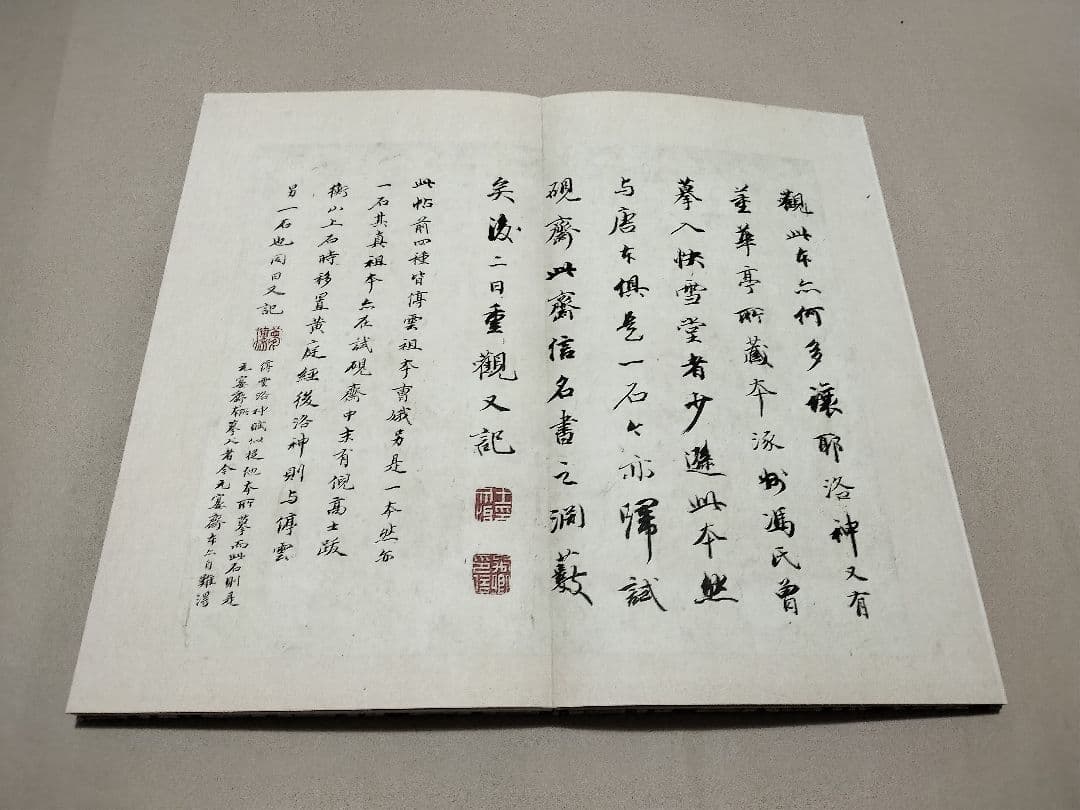 觀此本亦何多讓耶洛神又有
董華亭所藏本涿州馮氏曾
摹入快雪堂者少遜此本然
与唐本俱是一石今亦歸試
硯齋此齋信名書之淵藪
矣後二日重觀又記
此帖前四種皆停雲祖本曹娥另是一本然亦
一石其真祖本亦在試硯齋中末有倪高士跋
衡山上石時移置黃庭經後洛神則与停雲
另一石也同日又記
停雲洛神賦似從他本所摹而此石則是
元宴齋摹入者今元宴齋本亦自難得